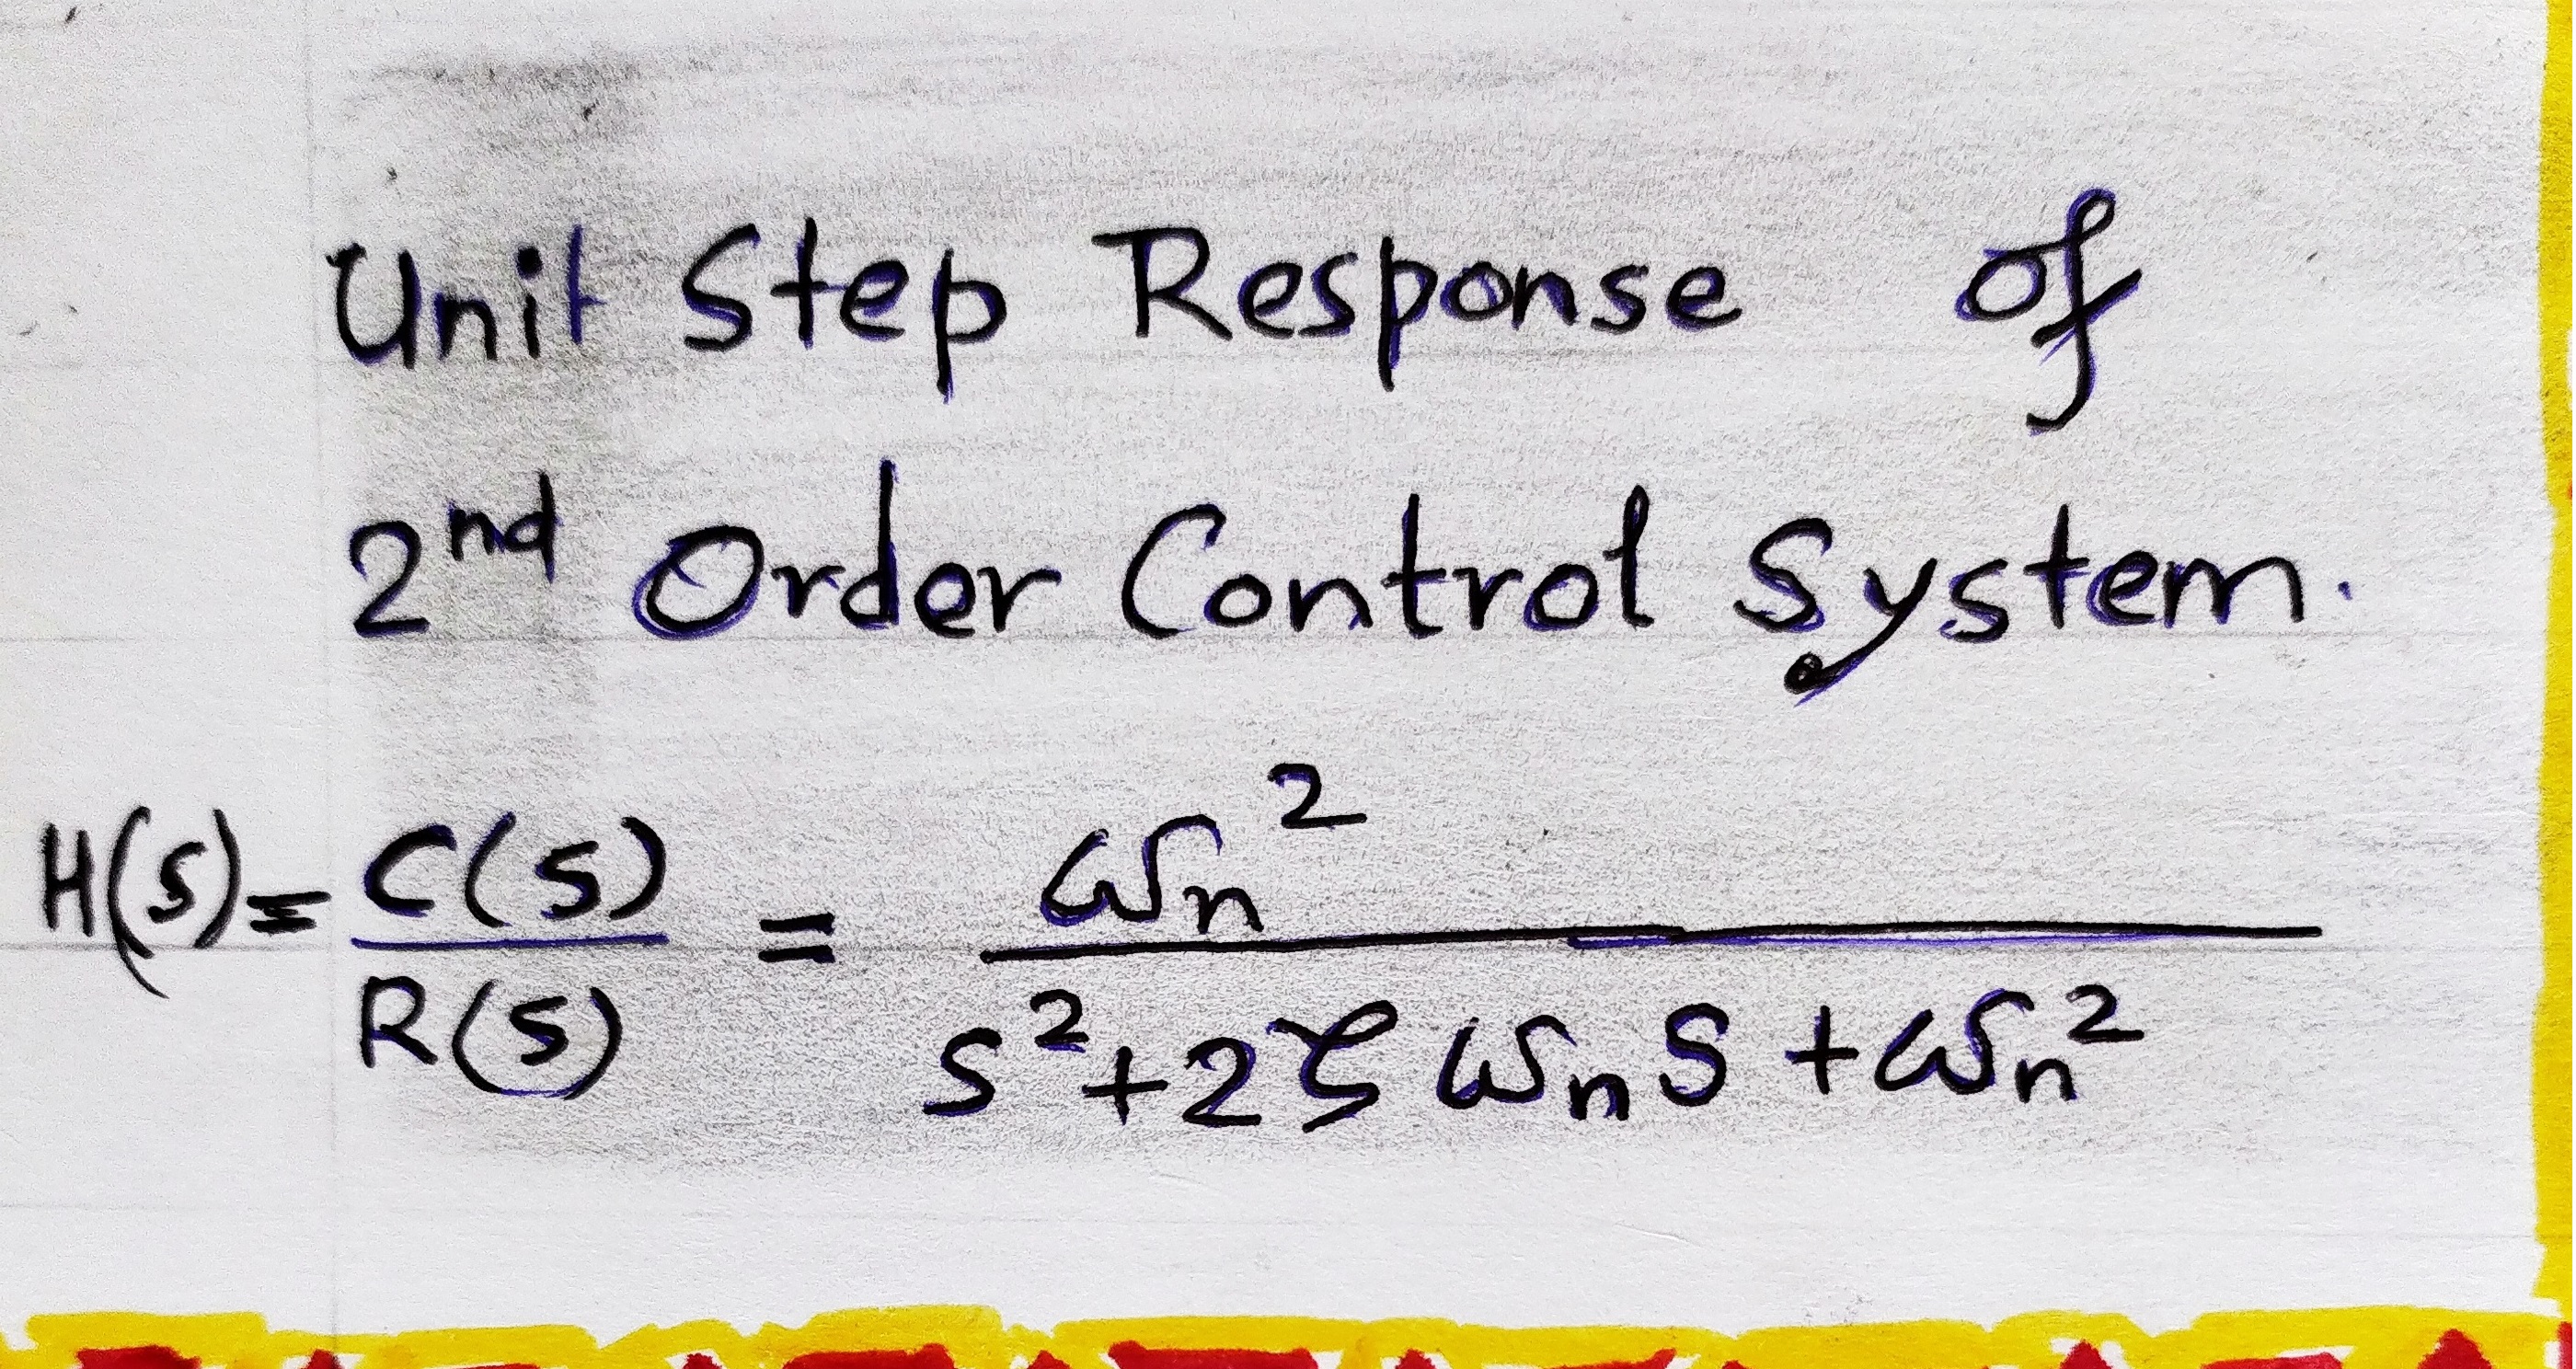 Unit Step Response of
2nd Order Control System.
H(s) = C(s)/R(s) = ωn²/(s²+2ζωns+ωn²)